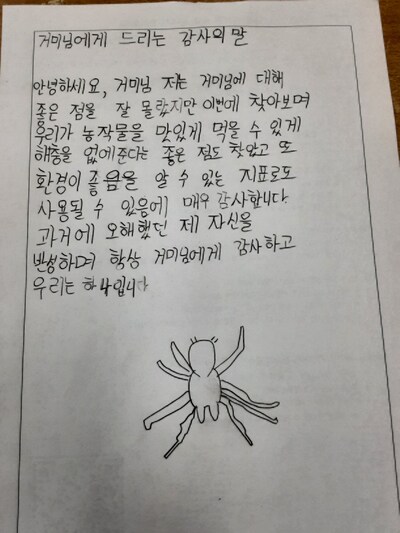 거미님에게 드리는 감사의 말
안녕하세요, 거미님 저는 거미님에 대해
좋은 점을 잘 몰랐지만 이번에 찾아보며
우리가 농작물을 맛있게 먹을 수 있게
해충을 없에준다는 좋은 점도 찾았고 또
환경이 좋음을 알 수 있는 지표로도
사용될 수 있음에 매우 감사합니다
과거에 오해했던 제 자신을
반성하며 항상 거미님에게 감사하고
우리는 하나입니다